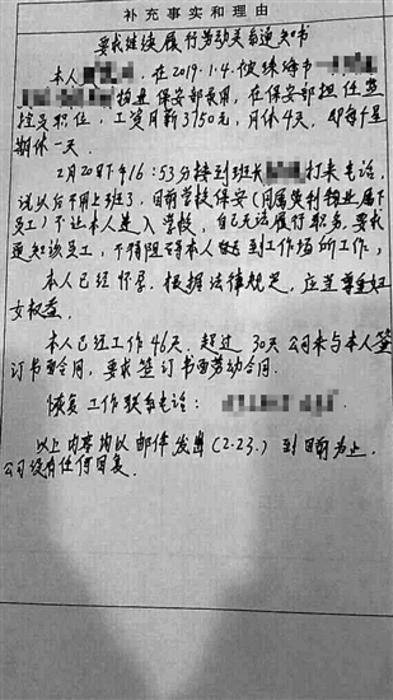 补充事实和理由
要求继续履行劳动关系通知书
本人 , 在2019.1.4.被珠海市
物业保安部录用,在保安部担任监
控员职位,工资月薪3750元,月休4天,即每个星
期休一天.
2月20日下午16:53分接到班长 打来电话,
说以后不用上班了,目前学校保安(同属 物业属下
员工)不让本人进入学校,自己无法履行职务,要求
通知该员工,不得阻碍本人 到工作场所工作,
本人已经怀孕,根据法律规定,应当尊重妇
女权益.
本人已经工作46天,超过30天公司未与本人签
订书面合同,要求签订书面劳动合同.
恢复工作联系电话:
以上内容均以邮件发出(2.23.)到目前为止,
公司没有任何回复.